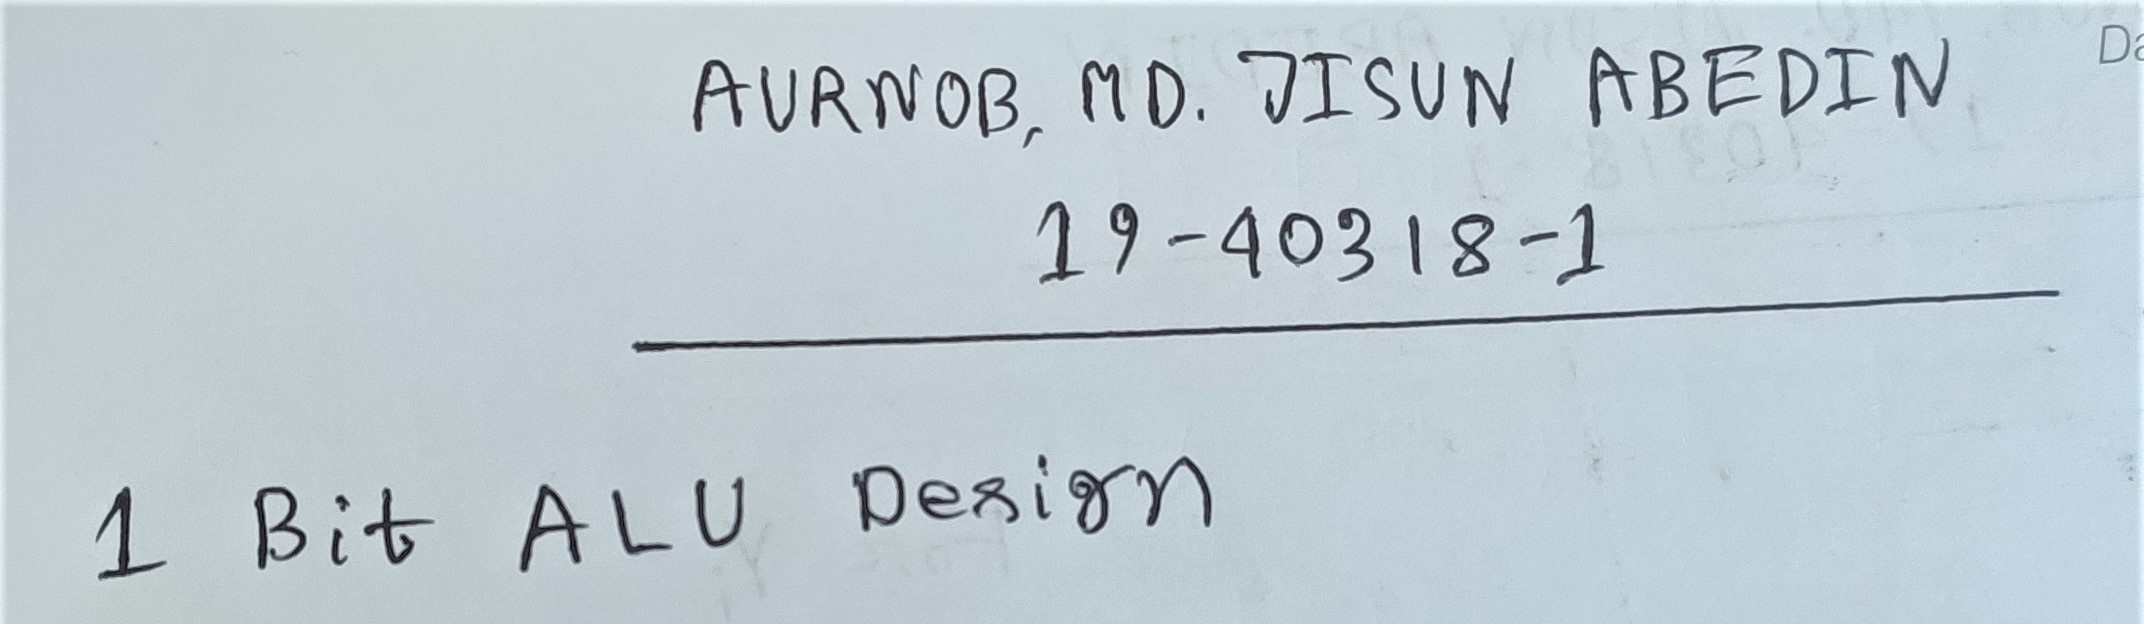 AURNOB, MD. JISUN ABEDIN
19-40318-1
1 Bit ALU Design